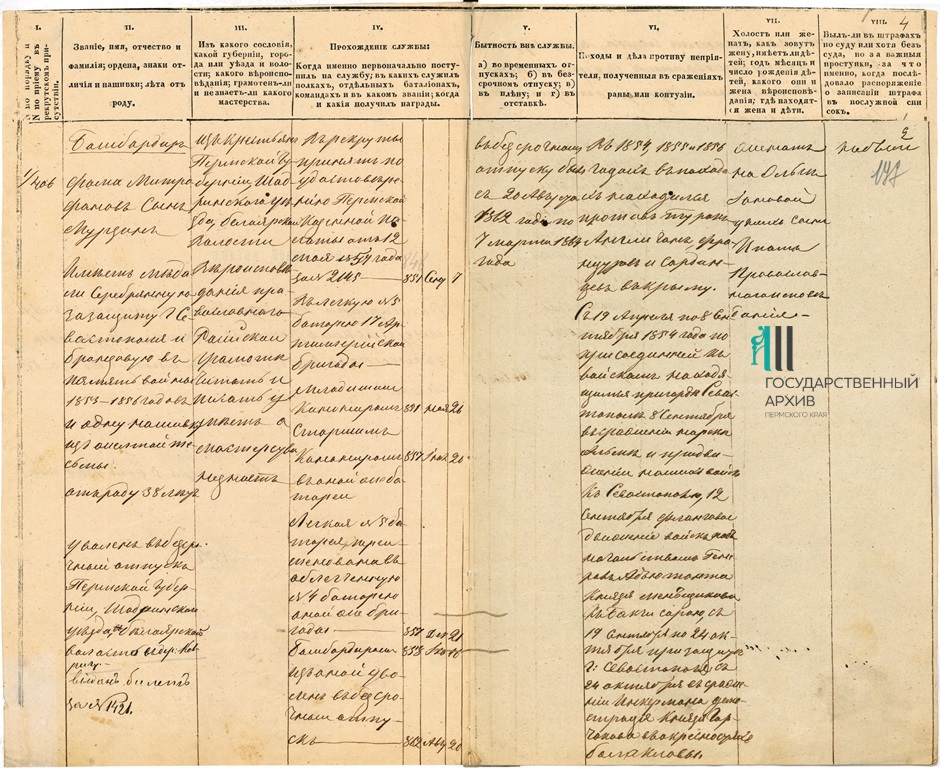 I.
II.
III.
IV.
V.
VI.
VII.
VIII.
4
N по приему въ рекрутскомъ присутствіи.
Званіе, имя, отчество и
фамилія; ордена, знаки от-
личія и нашивки; лѣта отъ
роду.
Изъ какого сословія,
какой губерніи, горо-
да или уѣзда и воло-
сти; какого вѣроиспо-
вѣданія; грамотенъ-ли
и незнаетъ-ли какого
мастерства.
Прохожденіе службы:
Когда именно первоначально посту-
пилъ на службу; въ какихъ служилъ
полкахъ, отдѣльныхъ баталіонахъ,
командахъ и въ какомъ званіи; когда
и какія получилъ награды.
Бытность внѣ службы.
а) во временныхъ от-
пускахъ; б) въ без-
срочномъ отпуску; в)
въ плѣну; и г) въ
отставкѣ.
Походы и дѣла противу непрія-
теля, полученныя въ сраженіяхъ
раны или контузіи.
Холостъ или же-
натъ, какъ зовутъ
жену, имѣетъ ли дѣ-
тей; годъ мѣсяцъ и
число рожденія дѣ-
тей, какого они и
жена вѣроисповѣ-
данія; гдѣ находят-
ся жена и дѣти.
Былъ-ли въ штрафахъ
по суду или хотя безъ
суда, но за важные
проступки, за что
именно, когда послѣ-
довало распоряженіе
о записаніи штрафа
въ послужной спи-
сокъ.
Бамбардиръ
Фома Митро
фановъ Сынъ
Мурзинъ
Имѣетъ меда
ли Серебрянную
за защиту г. Се
вастополя и
бронзовую въ
память войны
1853–1856 годовъ
и одну нашивку
изъ желтой те
сьмы.
отъ роду 38 лѣтъ
уволенъ въ безсро-
чный отпускъ
Пермской Губер-
ніи, Шадринской
уѣзда, Белоярской
волости
выданъ билетъ
за № 1421.
изъ крестьянъ
Пермской Гу
берніи Шад-
ринскаго уѣ
зда, белоярской
Волости
Вѣроисповѣ
данія пра
вославнаго
Россійской
грамотѣ
читать и
писать у
мѣетъ а
мастерства
незнаетъ
Въ рекруты
принятъ по
удостовѣре
нію Пермской
Казенной Па
латы отъ 12
мая 1854 года
за № 2145
851 Сен 7
Въ легкую № 3
батарею 17 Ар-
тиллерійской
бригады
Младшимъ
Канониромъ
мая 26
Старшимъ
Канониромъ
857
въ оной же ба
тареи
Легкая № 3 ба
тарея переи
менована въ
облегченную
№ 4 батарею
оной же бри
гады
857 21
Бамбардиромъ
858
изъ оной уво
ленъ въ безсро-
чный отпу-
скъ
862 Авг 20
въ безсрочномъ
отпуску былъ
съ 20 Августа
1862 года по
7 марта 1864
года
Въ 1854, 1855 и 1856
годахъ въ походахъ
находился
противъ турокъ
Англичанъ, фра-
нцузовъ и Сардин-
цевъ въ крыму.
Съ 19 Апреля по 8 Сен
тября 1854 года по
присоединеніи къ
войскамъ находя-
щимся при городѣ Севас
тополѣ 8 Сентября
въ сраженіи на рѣкѣ
Альмѣ и при дви-
женіи нашихъ войскъ
къ Севастополю, 12
Сентября фланговое
движеніе войскъ подъ
началь ствомъ Гене
рала Адъютанта
Князя Меньщикова
къ Бакчи сараю, съ
19 Сентября по 24 ок-
тября при защитѣ
г: Севастополя, съ
24 октября въ сраже-
ніи Инкермана демо-
страція Князя Гор-
чакова въ окрестностяхъ
Балаклавы
женатъ
на
Православ-
наго исповѣ
данія
небылъ
2
147
ГОСУДАРСТВЕННЫЙ
АРХИВ
ПЕРМСКОГО КРАЯ